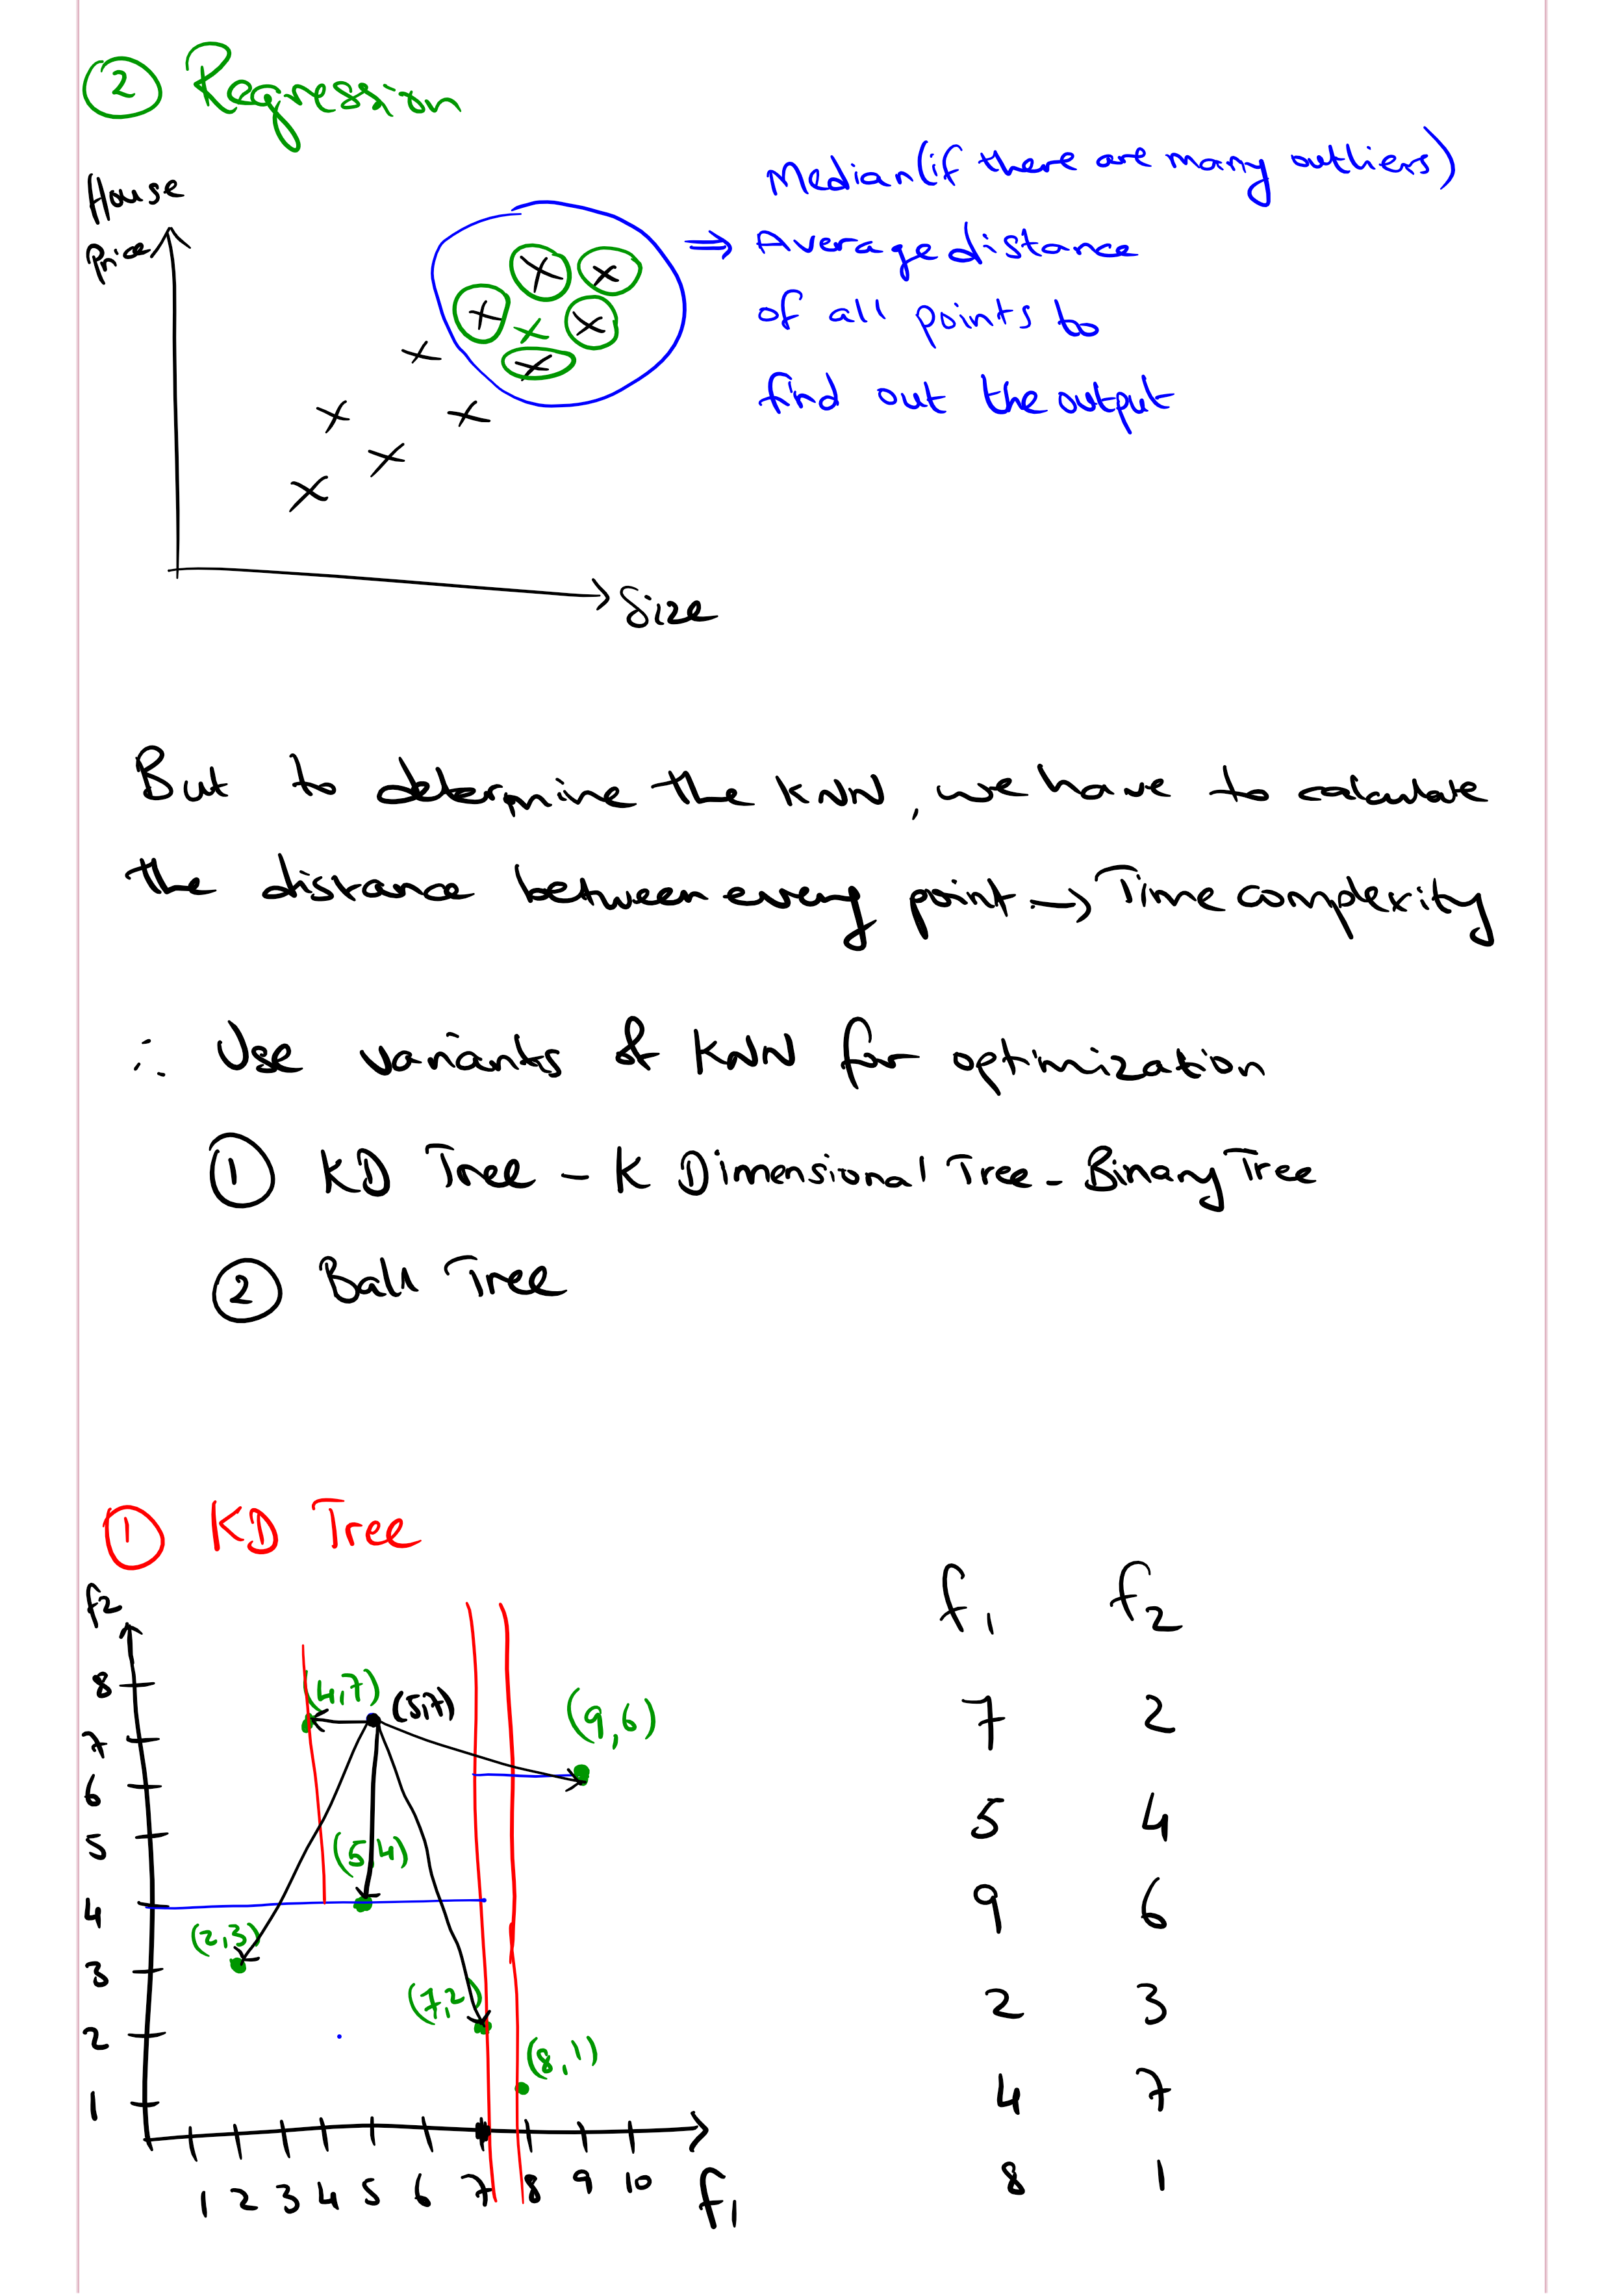 ② Regression
House
Price
Size
Median (if there are many outliers)
⇒ Average distance
of all points to
find out the output
But to determine the KNN, we have to calculate
the distance between every point → Time complexity
∴ Use variants of KNN for optimization
① KD Tree - K Dimensional Tree - Binary Tree
② Ball Tree
① KD Tree
f2
8
7
6
5
4
3
2
1
(4,7)
(5,7)
(9,6)
(5,4)
(2,3)
(7,2)
(8,1)
1 2 3 4 5 6 7 8 9 10
f1
f1 f2
7 2
5 4
9 6
2 3
4 7
8 1